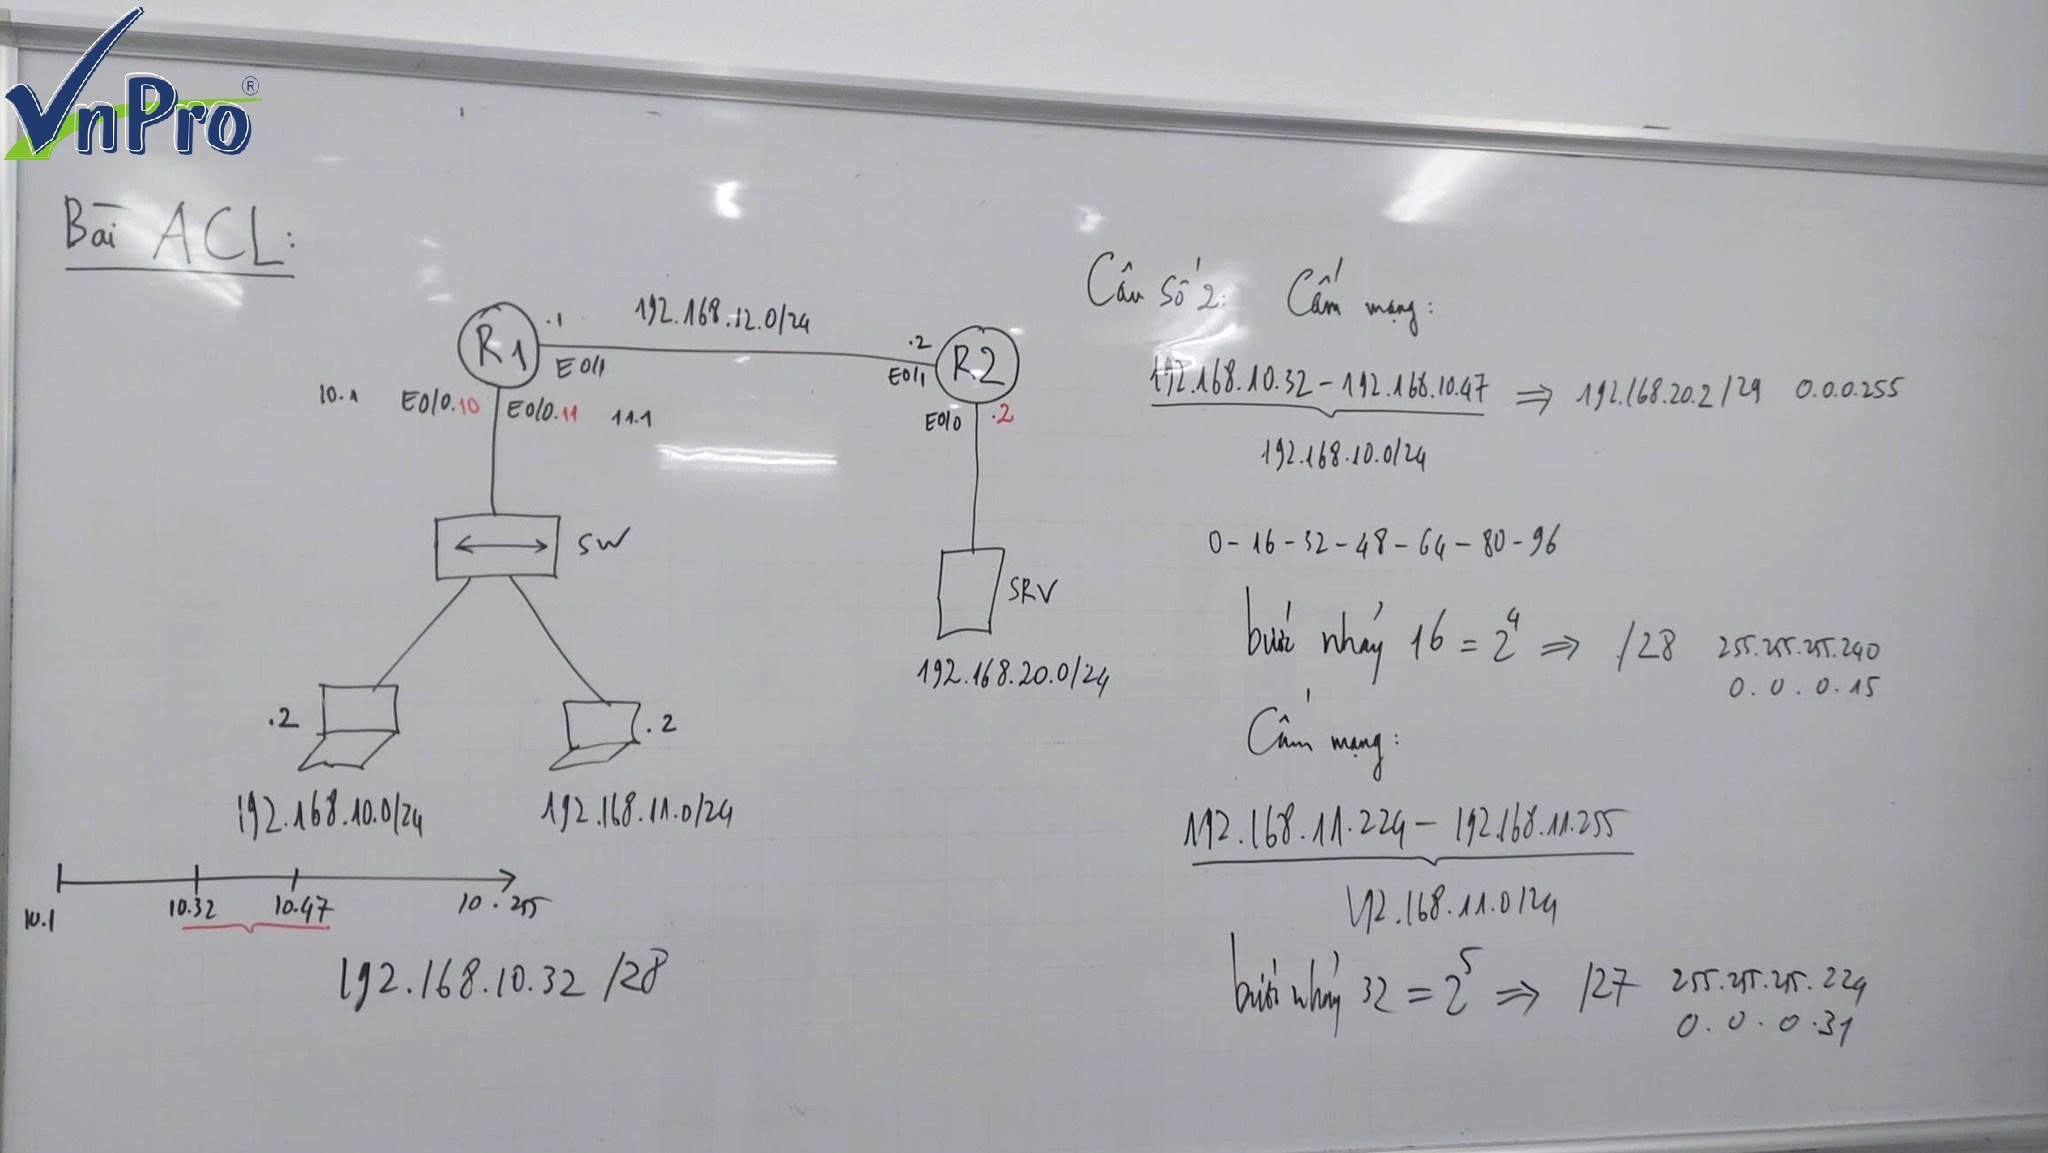 VnPro®
Bài ACL:
192.168.12.0/24
R1
.1
E0/1
.2
E0/1
R2
10.1
E0/0.10
E0/0.11
11.1
E0/0
.2
SW
SRV
192.168.20.0/24
.2
.2
192.168.10.0/24
192.168.11.0/24
10.1
10.32
10.47
10.255
192.168.10.32 /28
Câu số 2: Cấm mạng:
192.168.10.32 - 192.168.10.47 ⇒ 192.168.20.2/24 0.0.0.255
192.168.10.0/24
0-16-32-48-64-80-96
bước nhảy 16 = 2⁴ ⇒ /28 255.255.255.240
0.0.0.15
Cấm mạng:
192.168.11.224 - 192.168.11.255
192.168.11.0/24
bước nhảy 32 = 2⁵ ⇒ /27 255.255.255.224
0.0.0.31